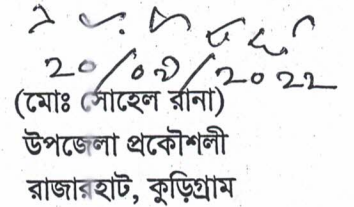 20/০৩/2022
(মোঃ সোহেল রানা)
উপজেলা প্রকৌশলী
রাজারহাট, কুড়িগ্রাম